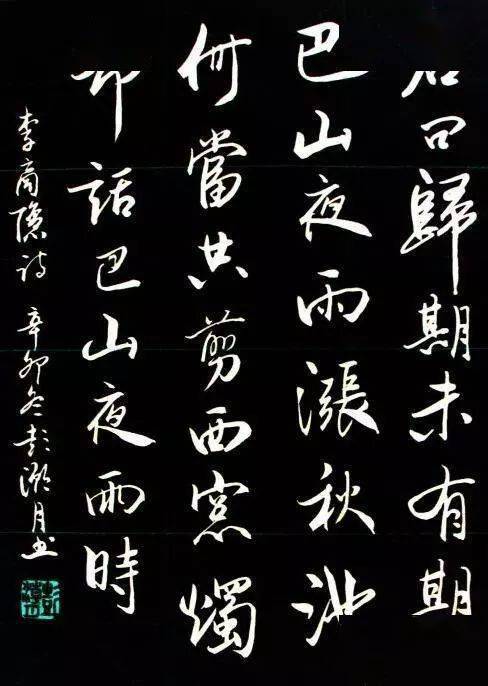 口歸期未有期
巴山夜雨漲秋池
何當共剪西窓燭
話巴山夜雨時
李商隱詩 辛卯冬彭月书